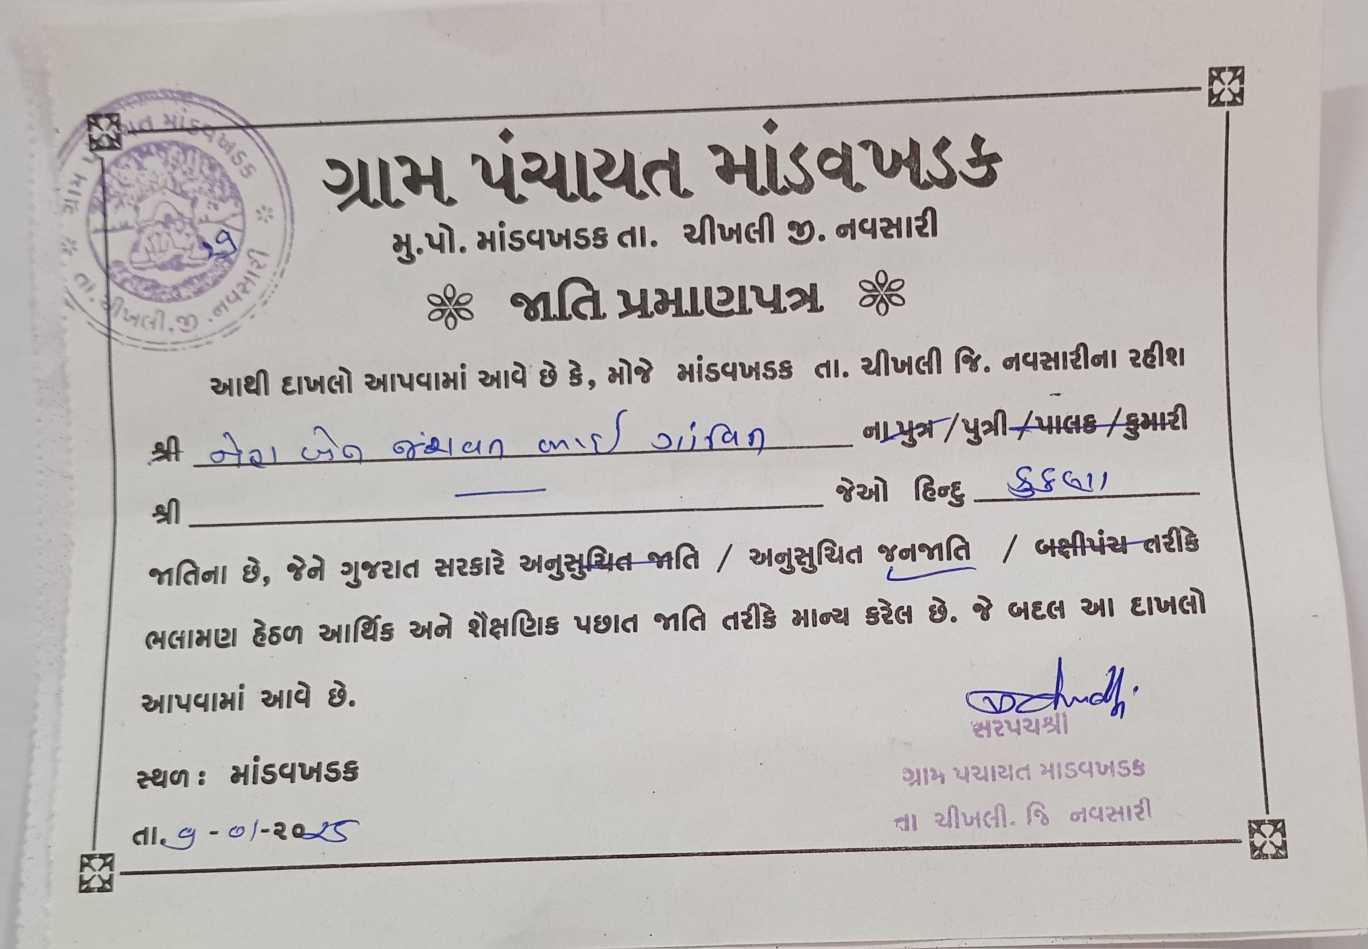 ગ્રામ પંચાયત માંડવખડક
મુ.પો. માંડવખડક તા. ચીખલી જી. નવસારી
જાતિ પ્રમાણપત્ર
આથી દાખલો આપવામાં આવે છે કે, મોજે માંડવખડક તા. ચીખલી જિ. નવસારીના રહીશ
શ્રી બેન જશવન ભાઈ ગાંવિત ના પુત્ર / પુત્રી / પાલક / કુમારી
શ્રી જેઓ હિન્દુ કુકણા
જાતિના છે, જેને ગુજરાત સરકારે અનુસુચિત જાતિ / અનુસુચિત જનજાતિ / બક્ષીપંચ તરીકે
ભલામણ હેઠળ આર્થિક અને શૈક્ષણિક પછાત જાતિ તરીકે માન્ય કરેલ છે. જે બદલ આ દાખલો
આપવામાં આવે છે.
સ્થળ : માંડવખડક
તા. ૭ - ૦૧-૨૦25
સરપચશ્રી
ગ્રામ પચાયત માડવખડક
તા ચીખલી. જિ નવસારી